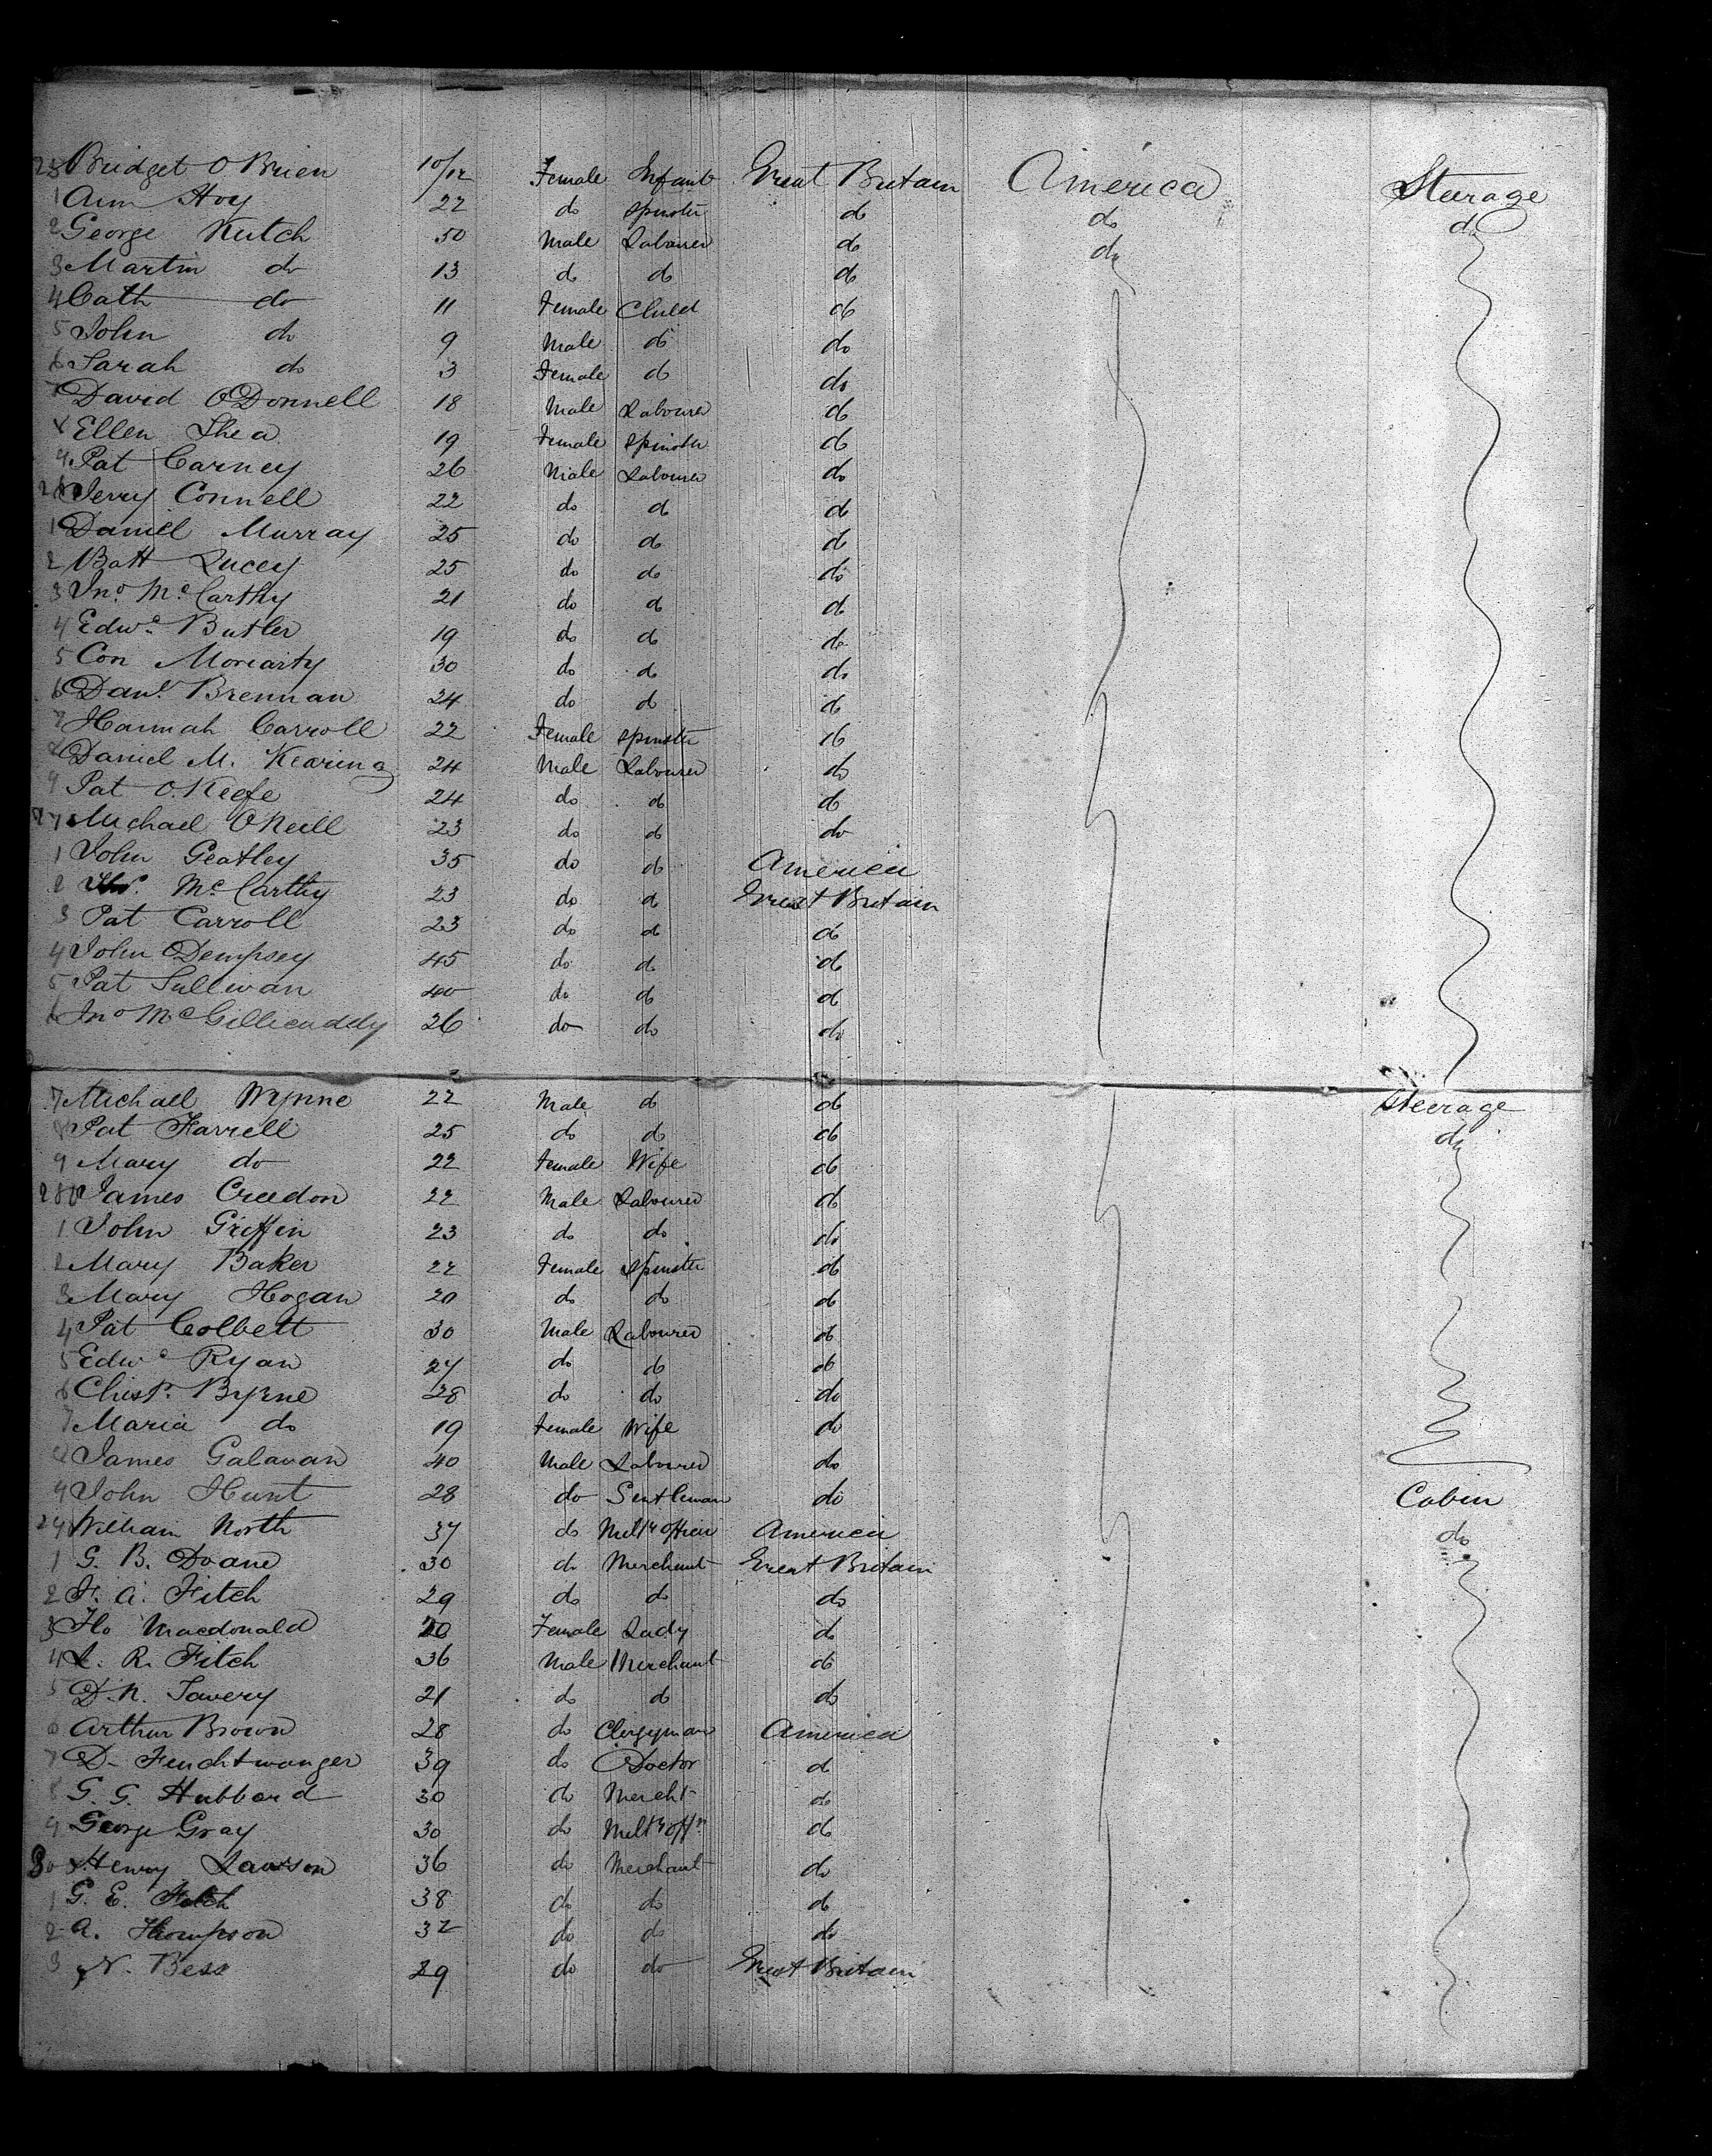 Bridget O Brien 10/12 Female Infant Great Britain America Steerage
1 Ann Hoy 22 do Spinster do do do
2 George Kutch 50 Male Labourer do do
3 Martin do 13 do do do
4 Cath do 11 Female Child do
5 John do 9 Male do do
6 Sarah do 3 Female do do
7 David O'Donnell 18 Male Labourer do
8 Ellen Shea 19 Female Spinster do
9 Pat Carney 26 Male Labourer do
Jerry Connell 22 do do do
1 Daniel Murray 25 do do do
2 Batt Lucey 25 do do do
3 Jno. McCarthy 21 do do do
4 Edwd. Butler 19 do do do
5 Con Moriarty 30 do do do
6 Danl. Brennan 24 do do do
7 Hannah Carroll 22 Female Spinster do
8 Daniel M. Kearing 24 Male Labourer do
9 Pat O. Keefe 24 do do do
Michael O'Neill 23 do do do
1 John Geatley 35 do do America
2 McCarthy 23 do do Great Britain
3 Pat Carroll 23 do do do
4 John Dempsey 45 do do do
5 Pat Sullivan 40 do do do
6 Jno McGillicuddy 26 do do do
7 Michael Wynne 22 Male do do Steerage
8 Pat Farrell 25 do do do do
9 Mary do 22 Female Wife do
280 James Creedon 22 Male Labourer do
1 John Griffin 23 do do do
2 Mary Baker 22 Female Spinster do
3 Mary Hogan 20 do do do
4 Pat Colbett 30 Male Labourer do
5 Edwd Ryan 27 do do do
6 Christ. Byrne 28 do do do
7 Maria do 19 Female Wife do
8 James Galavan 40 Male Labourer do
9 John Hunt 28 do Gentleman do Cabin
29 William North 37 do Milty officer America do
1 G. B. Doane 30 do Merchant Great Britain
2 F. A. Fitch 29 do do do
3 Flo Macdonald 20 Female Lady do
4 L. R. Fitch 36 Male Merchant do
5 D. N. Tavery 21 do do do
6 Arthur Brown 28 do Clergyman America
7 D- Feuchtwanger 39 do Doctor do
8 G. G. Hubbard 30 do Mercht do
9 George Gray 30 do Milty offr do
30 Henry Lawson 36 do Merchant do
1 G. E. 38 do do do
2 A. Thompson 32 do do do
3 N. Bess 29 do do Great Britain